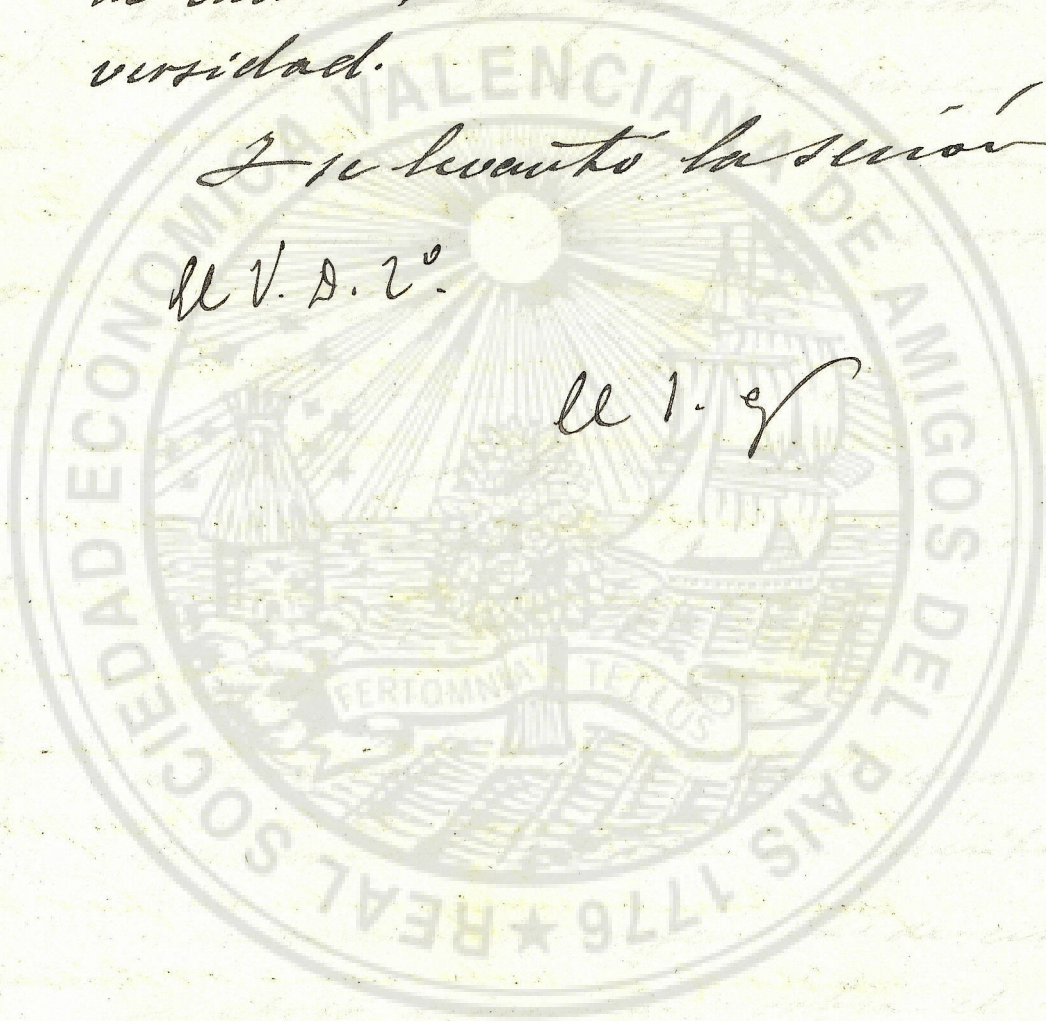 versidad.
Y se levantó la sesión
El V. D. 2º.
El S. G.
REAL SOCIEDAD ECONOMICA VALENCIANA DE AMIGOS DEL PAIS 1776
FERT OMNIA TELLUS